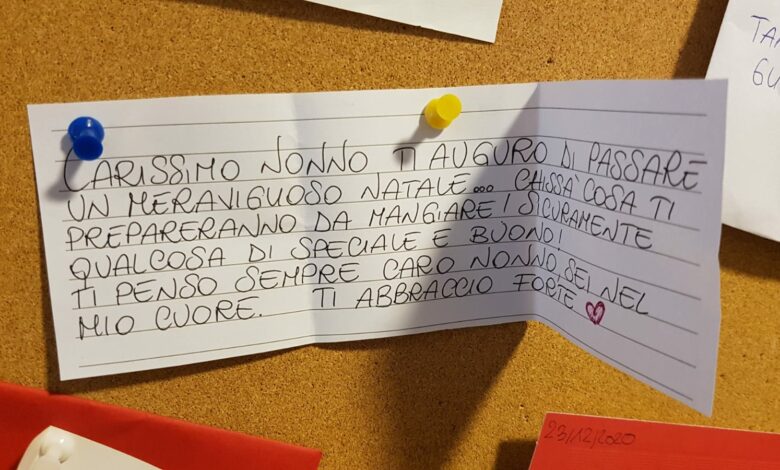 CARISSIMO NONNO TI AUGURO DI PASSARE
UN MERAVIGLIOSO NATALE... CHISSÀ COSA TI
PREPARERANNO DA MANGIARE! SICURAMENTE
QUALCOSA DI SPECIALE E BUONO!
TI PENSO SEMPRE CARO NONNO, SEI NEL
MIO CUORE. TI ABBRACCIO FORTE
23/12/2020